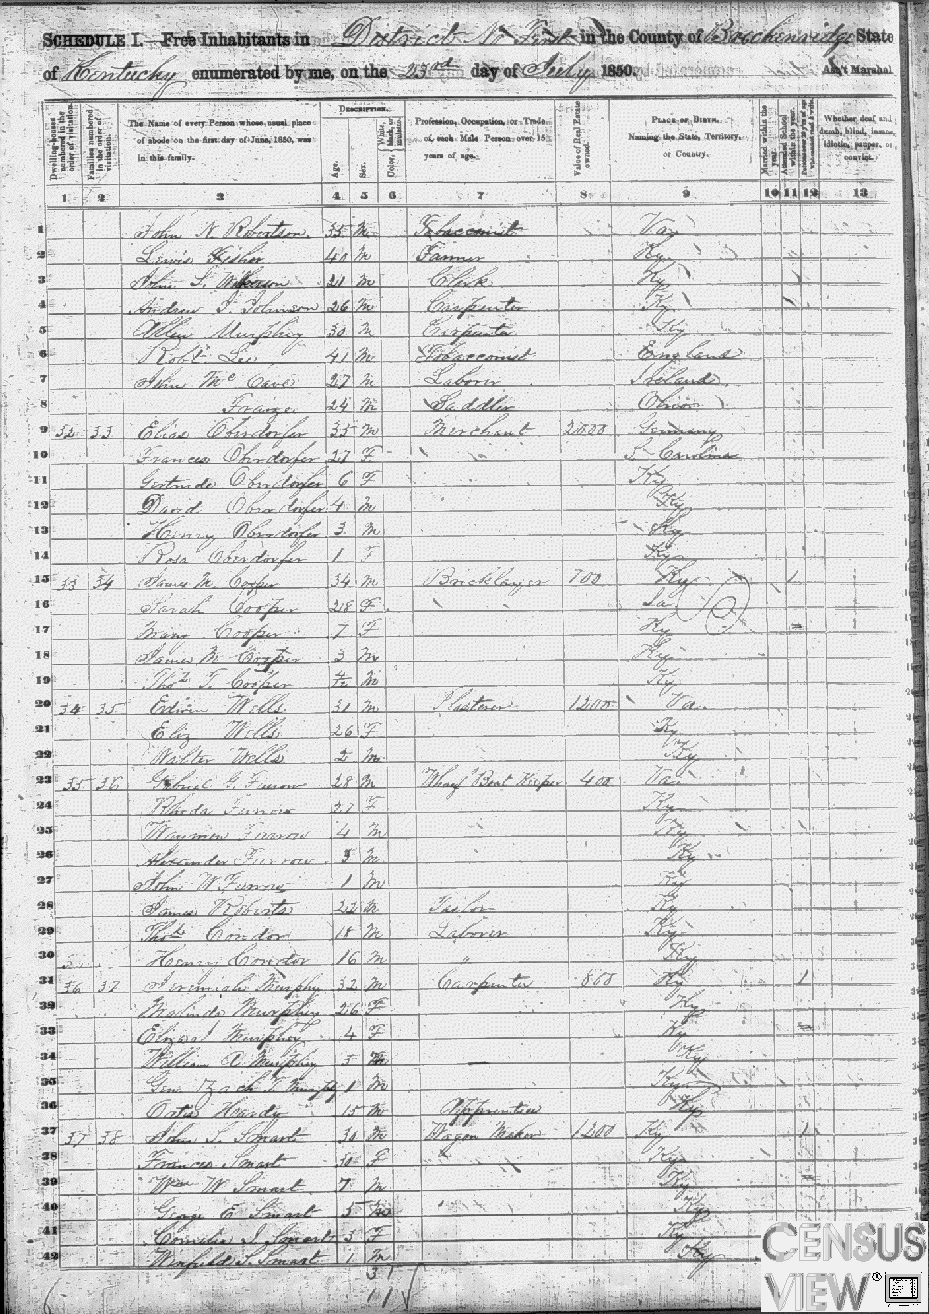 SCHEDULE I.—Free Inhabitants in District No First in the County of Breckenridge State
of Kentucky enumerated by me, on the 23rd day of July 1850. Ass't Marshal
Dwelling-houses numbered in the order of visitation.
Families numbered in the order of visitation.
The Name of every Person whose usual place of abode on the first day of June, 1850, was in this family.
DESCRIPTION.
Age.
Sex.
Color, White, black, or mulatto.
Profession, Occupation, or Trade of each Male Person over 15 years of age.
Value of Real Estate owned.
PLACE OF BIRTH. Naming the State, Territory, or Country.
Married within the year.
Attended School within the year.
Whether deaf and dumb, blind, insane, idiotic, pauper, or convict.
1 2 3 4 5 6 7 8 9 10 11 12 13
1 John N Robertson 35 M Tobacconist Va
2 Lewis Fisher 40 M Farmer Ky
3 John S. 21 M Clerk Ky
4 Andrew J. Johnson 26 M Carpenter Ky
5 Allen Murphy 30 M Carpenter Ky
6 Robt Lee 41 M Tobacconist England
7 John Mc Cave 27 M Laborer Ireland
8 Fraize 24 M Saddler Ohio
9 32 33 Elias Oberdorfer 35 M Merchant 2000 Germany
10 Frances Oberdorfer 27 F S. Carolina
11 Gertrude Oberdorfer 6 F Ky
12 David Oberdorfer 4 M Ky
13 Henry Oberdorfer 3 M Ky
14 Rosa Oberdorfer 1 F Ky
15 33 34 James M. Cooper 34 M Bricklayer 700 Ky 1
16 Sarah Cooper 28 F La
17 Mary Cooper 7 F Ky
18 James M Cooper 3 M Ky
19 Thos T. Cooper M Ky
20 34 35 Edwin Wells 31 M Plasterer 1200 Va
21 Eliz Wells 26 F Ky
22 Walter Wells 2 M Ky
23 35 36 Gabriel G. Furrow 28 M Wharf Boat Keeper 400 Va
24 Rhoda Furrow 27 F Ky
25 Furrow 4 M Ky
26 Alexander Furrow 3 M Ky
27 John W. Furrow 1 M Ky
28 James Roberts 22 M Taylor Ky
29 Thos Condor 18 M Laborer Ky
30 Henry Condor 16 M " Ky
31 36 37 Jeremiah Murphy 32 M Carpenter 800 Ky 1
32 Malinda Murphy 26 F Ky
33 Murphy 4 F Ky
34 William Murphy 3 M Ky
35 Gen. Zach T. Murphy 1 M Ky
36 Hardy 15 M Apprentice Ky
37 37 38 John S. Smart 30 M Wagon Maker 1200 Ky 1
38 Frances Smart 30 F Ky
39 Wm W Smart 7 M Ky
40 George E Smart 5 M Ky
41 Cornelia J. Smart 3 F Ky
42 Winfield S. Smart 1 M Ky
CENSUS
VIEW®